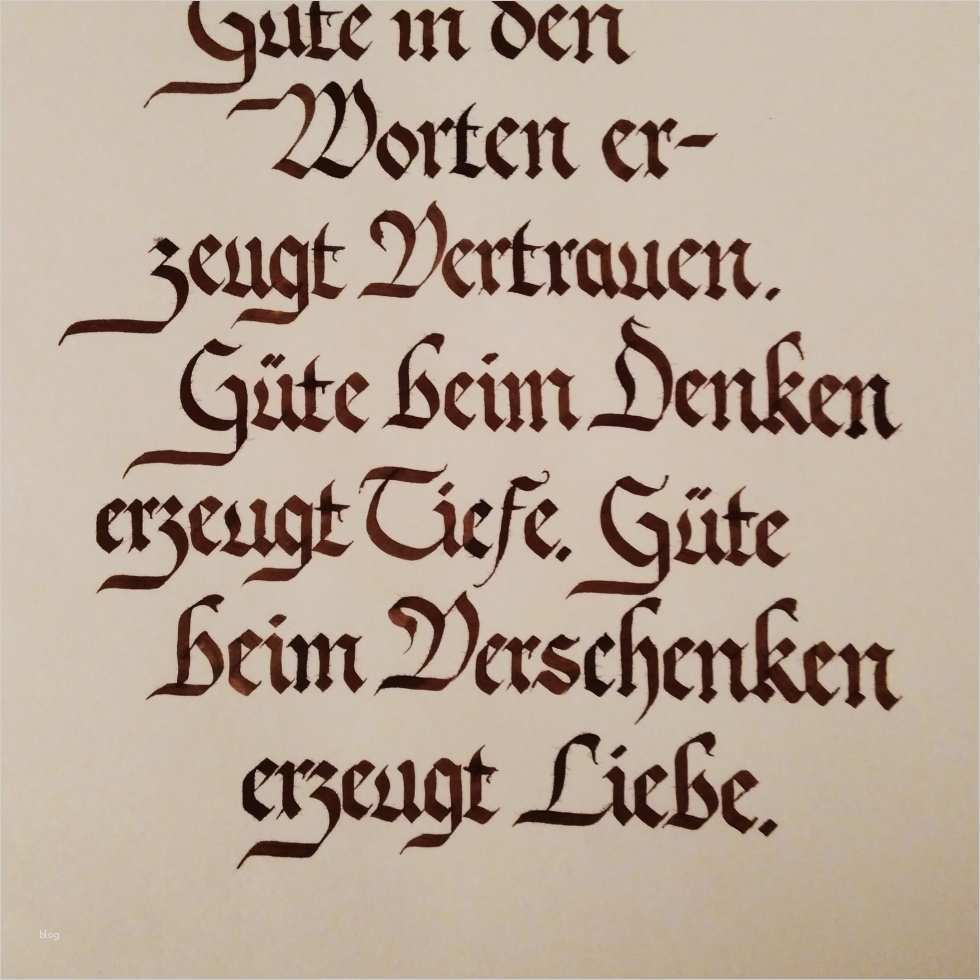 Güte in den
Worten er-
zeugt Vertrauen.
Güte beim Denken
erzeugt Tiefe. Güte
beim Verschenken
erzeugt Liebe.
blog